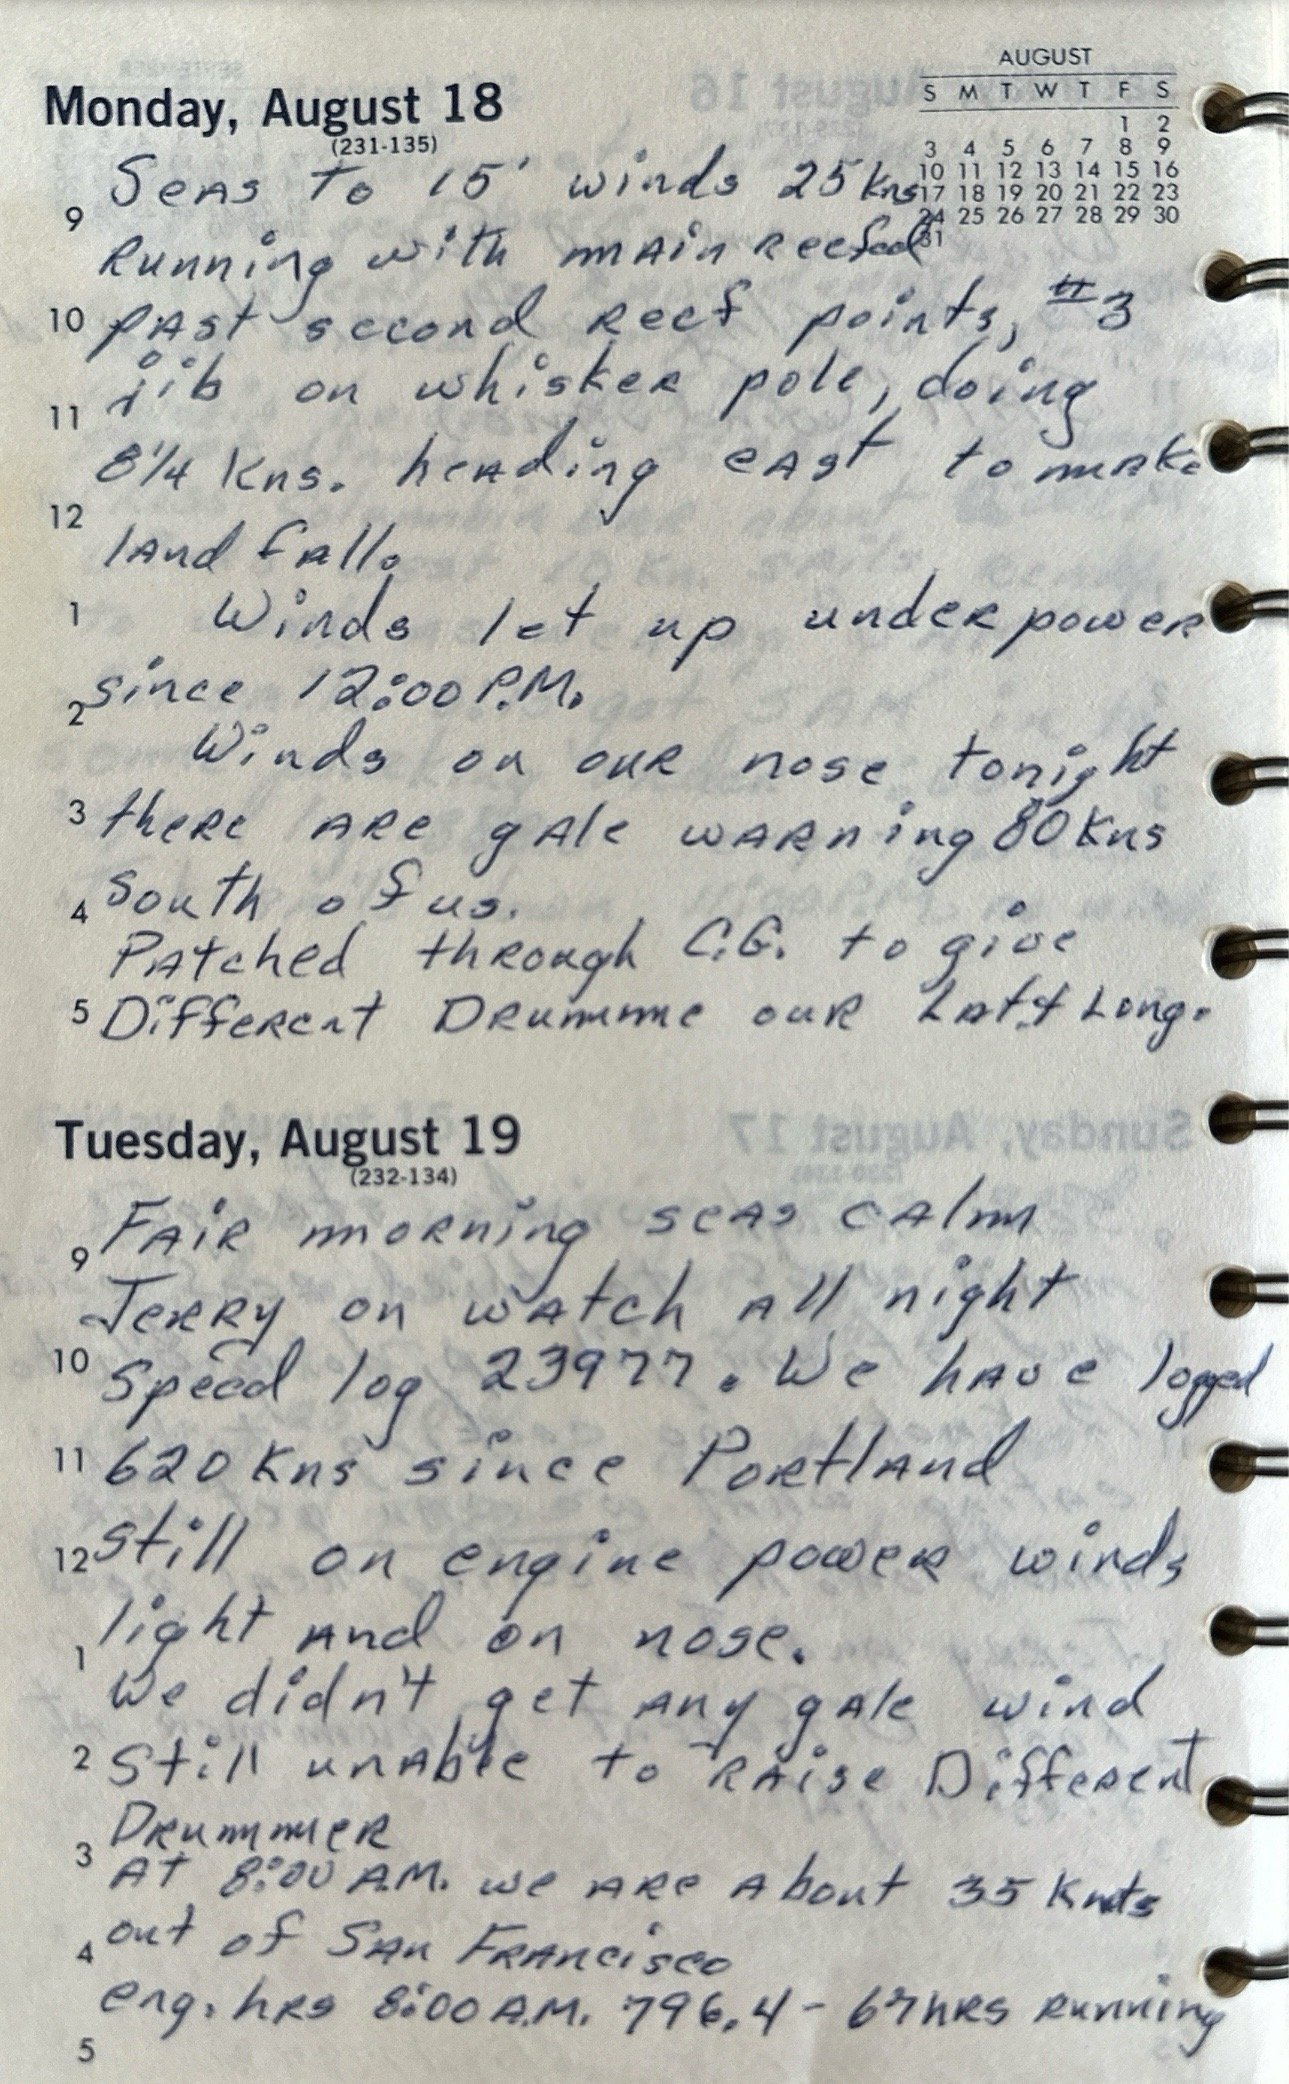 AUGUST
S M T W T F S
1 2
3 4 5 6 7 8 9
10 11 12 13 14 15 16
17 18 19 20 21 22 23
24 25 26 27 28 29 30
31
Monday, August 18
(231-135)
Seas to 15' winds 25 Kns
9
Running with main reefed
10 past second reef points, #3
jib on whisker pole, doing
11
8 1/4 Kns. heading east to make
12
land fall.
1 Winds let up under power
since 12:00 P.M.
2
Winds on our nose tonight
3 there are gale warning 80 Kns
4 South of us.
Patched through C.G. to give
5 Different Drumme our Lat & Long.
Tuesday, August 19
(232-134)
Fair morning seas calm
9
Jerry on watch all night
10 Speed log 23977. We have logged
11 620 Kns since Portland
12 still on engine power winds
light and on nose.
1
We didn't get any gale wind
2 Still unable to raise Different
Drummer
3
At 8:00 A.M. we are about 35 Knts
4 out of San Francisco
eng. hrs 8:00 A.M. 796.4 - 67 hrs running
5